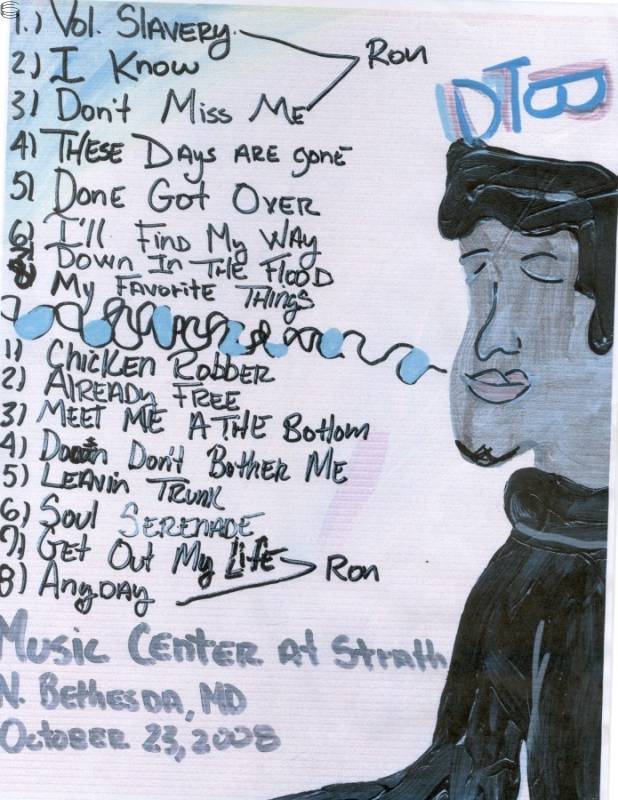 1.) Vol. Slavery
Ron
2) I Know
3) Don't Miss Me
DTB
4) These Days are gone
5) Done Got Over
6) I'll Find My Way
Down In The Flood
My Favorite Things
1) Chicken Robber
2) Already Free
3) Meet Me A The Bottom
4) Don't Bother Me
5) Leavin Trunk
6) Soul Serenade
7) Get Out My Life
Ron
8) Anyday
Music Center At Strath
N. Bethesda, MD
October 23, 2008